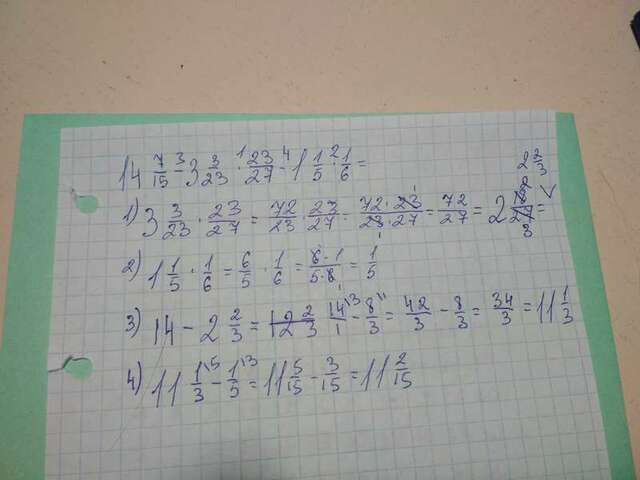 14 7/15 -³ 3 3/23 ·¹ 23/27 -⁴ 1 1/5 ·² 1/6 =
1) 3 3/23 · 23/27 = 72/23 · 23/27 = 72 · 23/23 · 27 = 72/27 = 2 = 2 2/3
2) 1 1/5 · 1/6 = 6/5 · 1/6 = 6 · 1/5 · 6 = 1/5
3) 14 - 2 2/3 = 12 2/3 14/1 - 8/3 = 42/3 - 8/3 = 34/3 = 11 1/3
4) 11 1/3 \5 - 1/5 \3 = 11 5/15 - 3/15 = 11 2/15